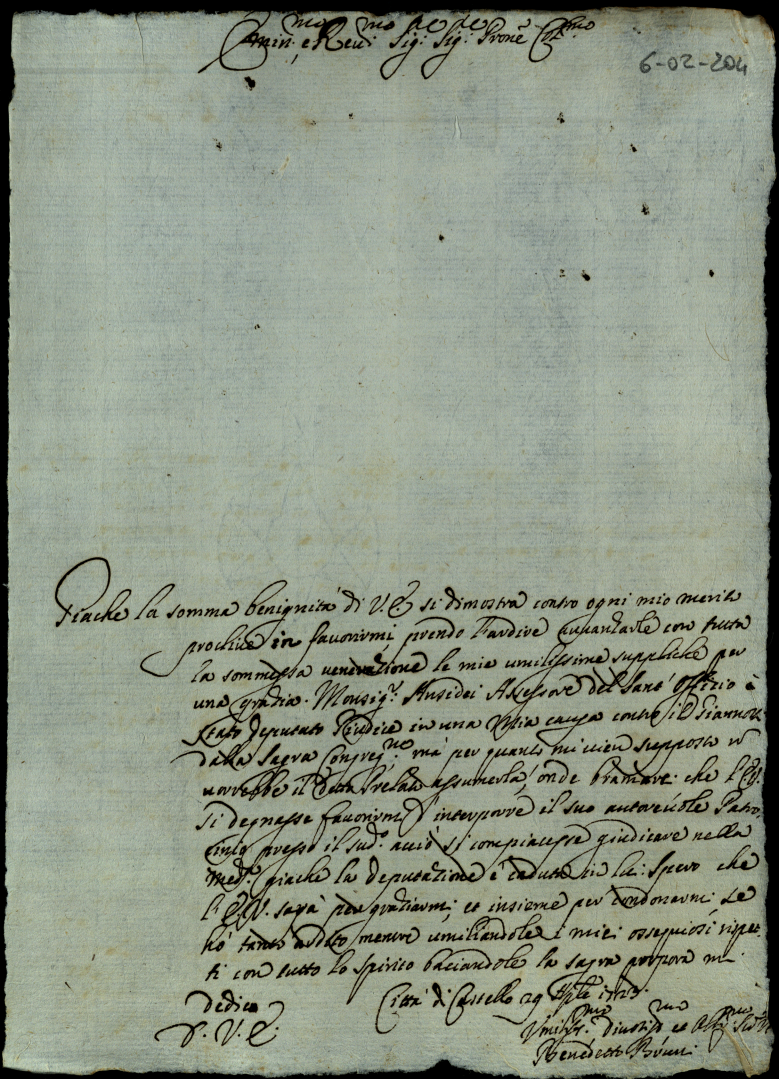 Emin.mo e Rev.mo Sig.re Sig.re Prone Col.mo
6-02-204
Giache la somma benignità di V.E. si dimostra contro ogni mio merito
proclive in favorirmi, prendo l'ardire avvanzarle con tutta
la sommessa venerazione le mie umilissime suppliche per
una grazia. Monsig.r Ansidei Assessore del Sant'Offizio è
stato deputato Giudice in una mia causa contro il
dalla Sagra Congreg.ne mà per quanto mi vien supposto
vorrebbe il detto Prelato assumerla, onde bramarei che l'E.V.
si degnasse favorirmi d'interporre il suo autorevole Patro
cinio presso il sud.o acciò si compiacesse giudicare nella
med.a giache la deputazione è caduta in lui. Spero che
l'E.V. sarà per graziarmi, et insieme per condonarmi, se
hò tanto ardito, mentre umiliandole i miei ossequiosi rispet
ti con tutto lo spirito baciandole la sagra porpora mi
dedico Città di Castello 29 Aple
D. V. E.
Umiliss.mo Divotiss.mo et Obl.mo
Benedetto